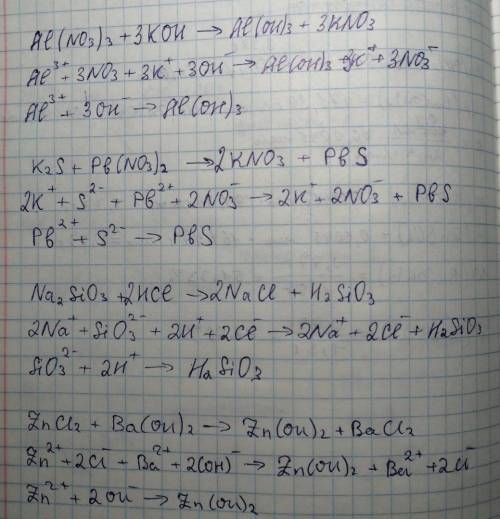 Al(NO3)3 + 3KOH → Al(OH)3 + 3KNO3
Al³⁺ + 3NO3 + 3K⁺ + 3OH⁻ → Al(OH)3 + 3K⁺ + 3NO3⁻
Al³⁺ + 3OH⁻ → Al(OH)3
K2S + Pb(NO3)2 → 2KNO3 + PbS
2K⁺ + S²⁻ + Pb²⁺ + 2NO3⁻ → 2K⁺ + 2NO3⁻ + PbS
Pb²⁺ + S²⁻ → PbS
Na2SiO3 + 2HCl → 2NaCl + H2SiO3
2Na⁺ + SiO3²⁻ + 2H⁺ + 2Cl⁻ → 2Na⁺ + 2Cl⁻ + H2SiO3
SiO3²⁻ + 2H⁺ → H2SiO3
ZnCl2 + Ba(OH)2 → Zn(OH)2 + BaCl2
Zn²⁺ + 2Cl⁻ + Ba²⁺ + 2(OH)⁻ → Zn(OH)2 + Ba²⁺ + 2Cl⁻
Zn²⁺ + 2OH⁻ → Zn(OH)2